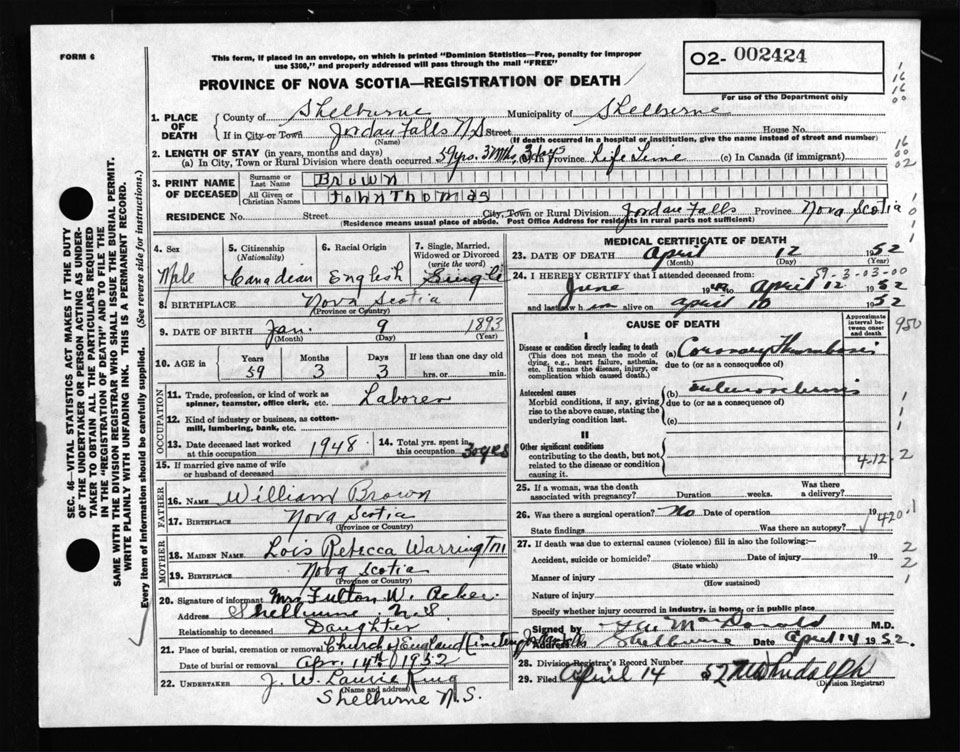 FORM 6
This form, if placed in an envelope, on which is printed "Dominion Statistics—Free, penalty for improper
use $300," and properly addressed will pass through the mail "FREE"
O2- 002424
For use of the Department only
PROVINCE OF NOVA SCOTIA—REGISTRATION OF DEATH
SEC. 46—VITAL STATISTICS ACT MAKES IT THE DUTY
OF THE UNDERTAKER OR PERSON ACTING AS UNDER-
TAKER TO OBTAIN ALL THE PARTICULARS REQUIRED
IN THE "REGISTRATION OF DEATH" AND TO FILE THE
SAME WITH THE DIVISION REGISTRAR WHO SHALL ISSUE THE BURIAL PERMIT.
WRITE PLAINLY WITH UNFADING INK. THIS IS A PERMANENT RECORD.
Every item of Information should be carefully supplied. (See reverse side for instructions.)
1. PLACE OF DEATH
County of Shelburne Municipality of Shelburne
If in City or Town Jordan Falls N.S Street House No.
(Name) (If death occurred in a hospital or institution, give the name instead of street and number)
2. LENGTH OF STAY (in years, months and days)
(a) In City, Town or Rural Division where death occurred 59 yrs. 3 Mths. 3 days (b) In Province Life Time (c) In Canada (if immigrant)
3. PRINT NAME OF DECEASED
Surname or Last Name Brown
All Given or Christian Names John Thomas
RESIDENCE No. Street City, Town or Rural Division Jordan Falls Province Nova Scotia
(Residence means usual place of abode. Post Office Address for residents in rural parts not sufficient)
4. Sex Male
5. Citizenship (Nationality) Canadian
6. Racial Origin English
7. Single, Married, Widowed or Divorced (write the word) Single
8. BIRTHPLACE Nova Scotia
(Province or Country)
9. DATE OF BIRTH Jan. 9 1893
(Month) (Day) (Year)
10. AGE Years 59 Months 3 Days 3 If less than one day old hrs. or min.
OCCUPATION
11. Trade, profession, or kind of work as spinner, teamster, office clerk, etc. Laborer
12. Kind of industry or business, as cotton-mill, lumbering, bank, etc.
13. Date deceased last worked at this occupation 1948
14. Total yrs. spent in this occupation 30 yrs
15. If married give name of wife or husband of deceased
FATHER
16. NAME William Brown
17. BIRTHPLACE Nova Scotia
(Province or Country)
MOTHER
18. MAIDEN NAME Lois Rebecca Warrington
19. BIRTHPLACE Nova Scotia
(Province or Country)
20. Signature of informant Mrs Fulton W. Acker
Address Shelburne N.S.
Relationship to deceased Daughter
21. Place of burial, cremation or removal Church of England
Date of burial or removal Apr. 14th, 1952
22. UNDERTAKER J. W. Laurie King
(Name and address)
Shelburne N.S.
MEDICAL CERTIFICATE OF DEATH
23. DATE OF DEATH April 12 1952
(Month) (Day) (Year)
59-3-03-00
24. I HEREBY CERTIFY that I attended deceased from:
June 19 to April 12 1952
and last saw him alive on April 10 1952
CAUSE OF DEATH
Approximate interval between onset and death
950
I
Disease or condition directly leading to death
(This does not mean the mode of dying, e.g., heart failure, asthenia, etc. It means the disease, injury, or complication which caused death.)
(a) Coronary Thrombosis
due to (or as a consequence of)
Antecedent causes
Morbid conditions, if any, giving rise to the above cause, stating the underlying condition last.
(b)
due to (or as a consequence of)
(c)
II
Other significant conditions
contributing to the death, but not related to the disease or condition causing it.
4.12.2
25. If a woman, was the death associated with pregnancy? Duration weeks. Was there a delivery?
26. Was there a surgical operation? No Date of operation 19
State findings Was there an autopsy?
420.1
27. If death was due to external causes (violence) fill in also the following:—
Accident, suicide or homicide? Date of injury 19
(State which)
Manner of injury
(How sustained)
Nature of injury
Specify whether injury occurred in industry, in home, or in public place
Signed by MacDonald M.D.
Address Shelburne Date April 14 1952.
28. Division Registrar's Record Number
29. Filed April 14 52
(Division Registrar)